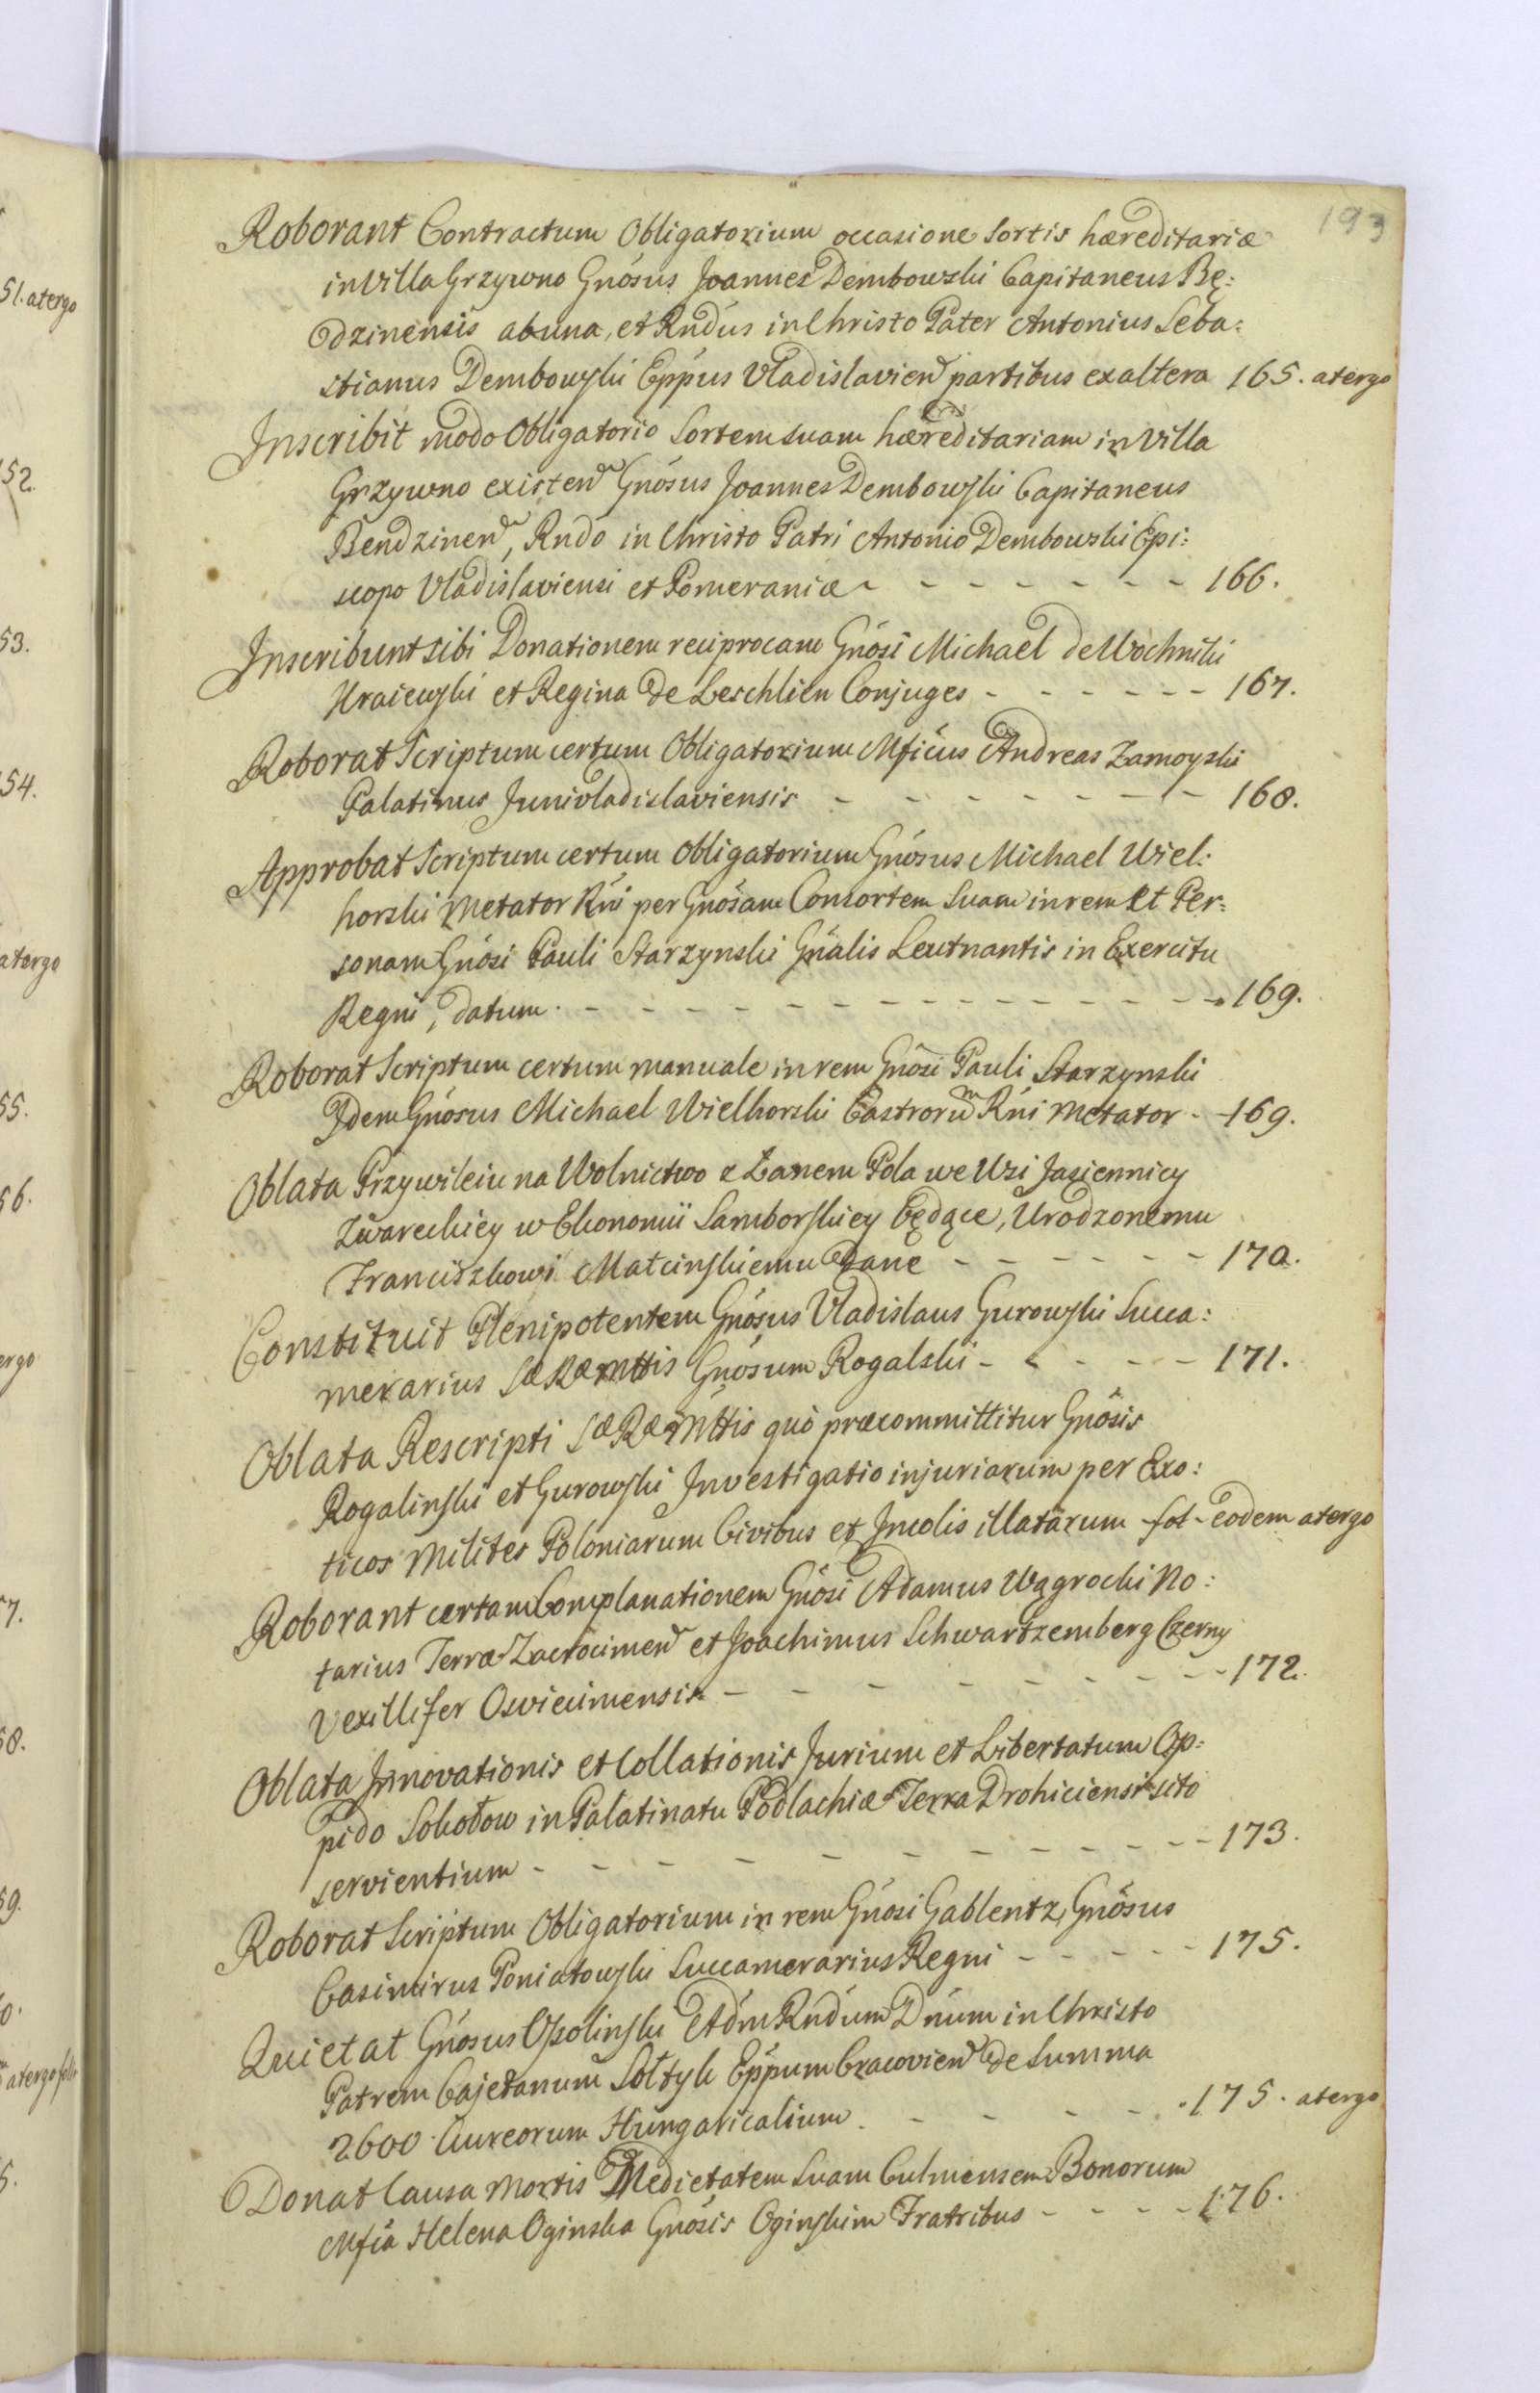 193
Roborant Contractum Obligatorium occasione Sortis hæreditariæ
in Villa Grzywno Gnosus Joannes Dembowski Capitaneus Bę:
dzinensis ab una, et Rndus in Christo Pater Antonius Seba:
stianus Dembowski Eppus Vladislavien partibus ex altera 165. atergo
Inscribit modo Obligatorio Sortem suam hæreditariam in Villa
Grzywno existen Gnosus Joannes Dembowski Capitaneus
Bendzinen, Rndo in Christo Patri Antonio Dembowski Epi:
scopo Vladislaviensi et Pomeraniæ - - - - - - - 166.
Inscribunt sibi Donationem reciprocam Gnosi Michael de Wochniki
Kraiewski et Regina de Leschlien Conjuges - - - - - - 167.
Roborat Scriptum certum Obligatorium Mficus Andreas Zamoyski
Palatinus Junivladislaviensis - - - - - - - 168.
Approbat Scriptum certum Obligatorium Gnosus Michael Wiel:
horski Metator Rni per Gnosam Consortem Suam in rem et Per:
sonam Gnosi Pauli Starzynski Gnalis Leutnantis in Exercitu
Regni, datum - - - - - - - - - - - - 169.
Roborat Scriptum certum manuale in rem Gnosi Pauli Starzynski
Idem Gnosus Michael Wielhorski Castrorum Rni Metator - 169.
Oblata Przywileiu na Wolnictwo z Łanem Pola we Wsi Jasiennicy
Zwareckiey w Ekonomii Samborskiey będące, Urodzonemu
Franciszkowi Matcinskiemu dane - - - - - - 170.
Constituit Plenipotentem Gnosus Vladislaus Gurowski Succa:
merarius Sæ Ræ Mttis Gnosum Rogalski - - - - - 171.
Oblata Rescripti Sæ Ræ Mttis quo præcommittitur Gnosis
Rogalinski et Gurowski Investigatio injuriarum per Exo:
ticos Milites Poloniarum Civibus et Incolis illatarum - fol - eodem atergo
Roborant certam Complanationem Gnosi Adamus Wągrocki No:
tarius Terræ Zacrocimen et Joachimus Schwartzemberg Czerny
Vexillifer Osviecimensis - - - - - - - - 172.
Oblata Innovationis et Collationis Jurium et Libertatum Op:
pido Sokołow in Palatinatu Podlachiæ Terra Drohiciensi sito
servientium - - - - - - - - - - 173.
Roborat Scriptum Obligatorium in rem Gnosi Gablentz, Gnosus
Casimirus Poniatowski Succamerarius Regni - - - - - 175.
Quietat Gnosus Ossolinski Adm Rndum Dnum in Christo
Patrem Cajetanum Sołtyk Eppum Cracovien de Summa
2600 Aureorum Hungaricalium - - - - - 175. atergo
Donat Causa Mortis Medietatem Suam Culmensem Bonorum
Mfica Helena Oginska Gnosis Oginskim Fratribus - - - - 176.
51. atergo
152.
53.
54.
atergo
55.
56.
ergo
57.
58.
59.